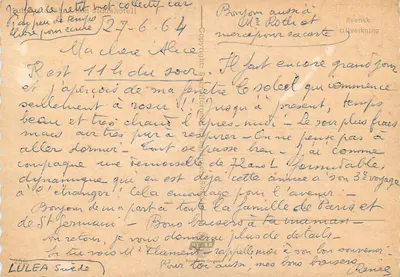 je fais petit mot collectif car
j'ai peu de temps
libre pour écrire
27-6-64
Bonjour aussi à
Mr Roth et
merci pour sa carte
Svensk
tillverkning
Ma chère Alice
Il est 11 h du soir, Il fait encore grand jour
et j'aperçois de ma fenêtre le soleil qui commence
seulement à rosir!! Jusqu'à présent, temps
beau et très chaud l'après-midi - le soir plus frais
mais air très pur à respirer - On ne pense pas à
aller dormir - Tout se passe bien - J'ai comme
compagne une demoiselle de 72 ans 1/2 formidable,
dynamique qui en est déjà cette année à son 3e voyage
à l'étranger! Cela encourage pour l'avenir! -
Bonjour de ma part à toute la famille de Paris et
de St Germain! - Bons baisers à ta maman -
Au retour, je vous donnerai plus de détails -
Si tu vois Mr Clament - rappelle-moi à son bon souvenir.
Pour toi aussi, mes bons baisers
LULEA Suède